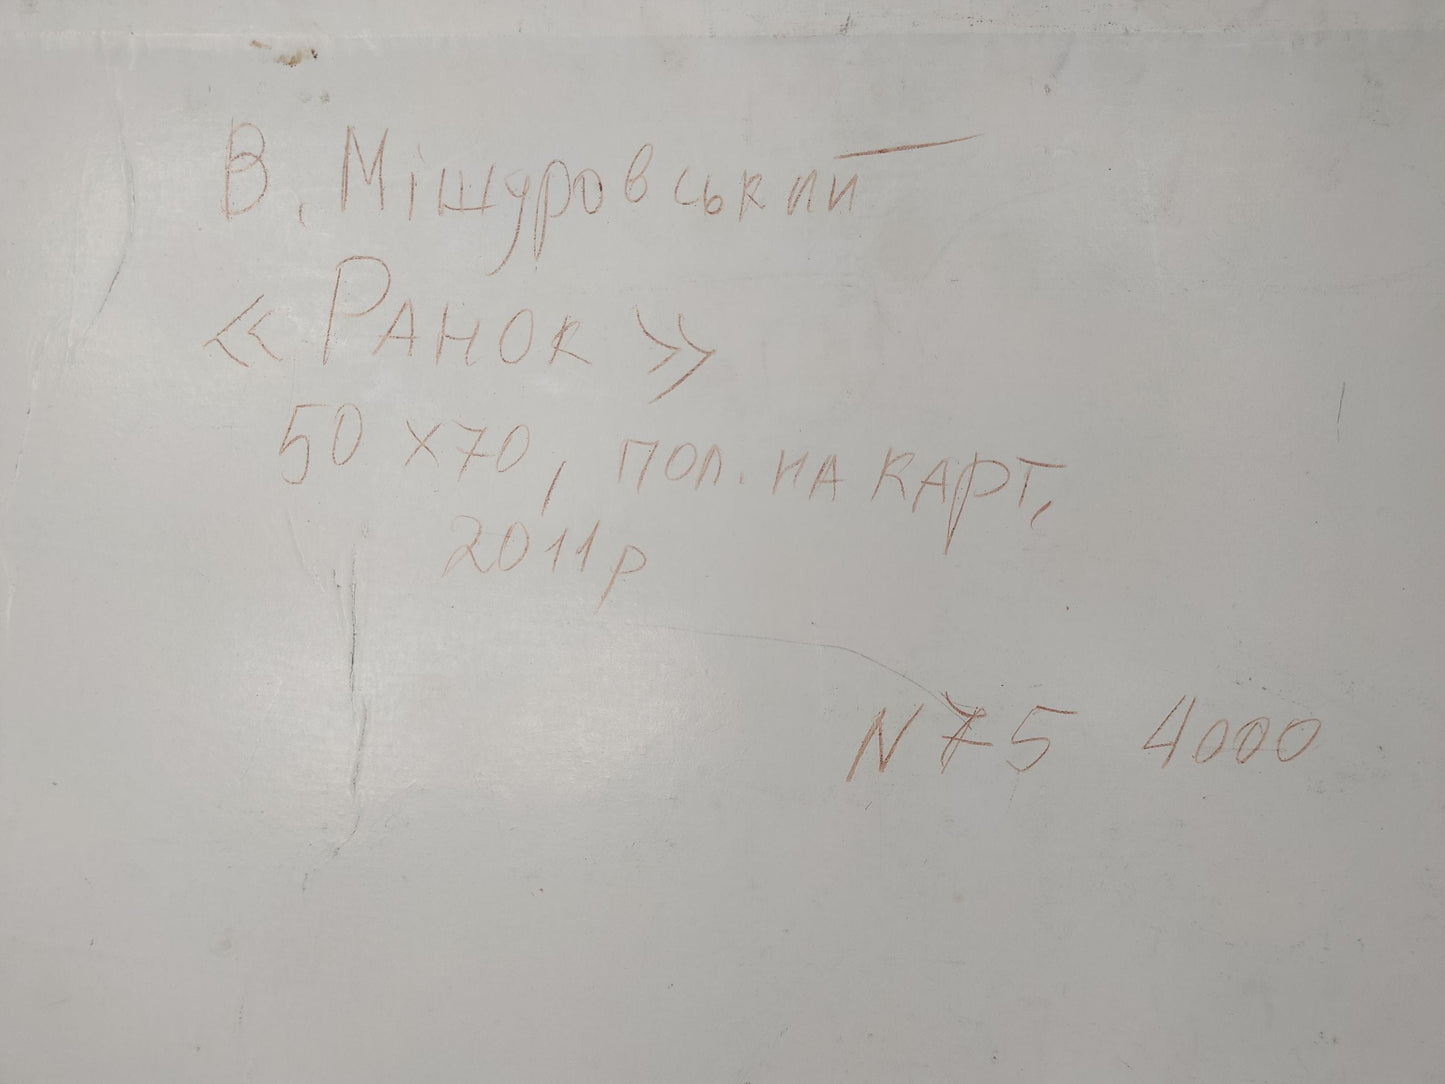 В. Мішуровський
«Ранок»
50х70, пол. на карт,
2011р
N 75 4000